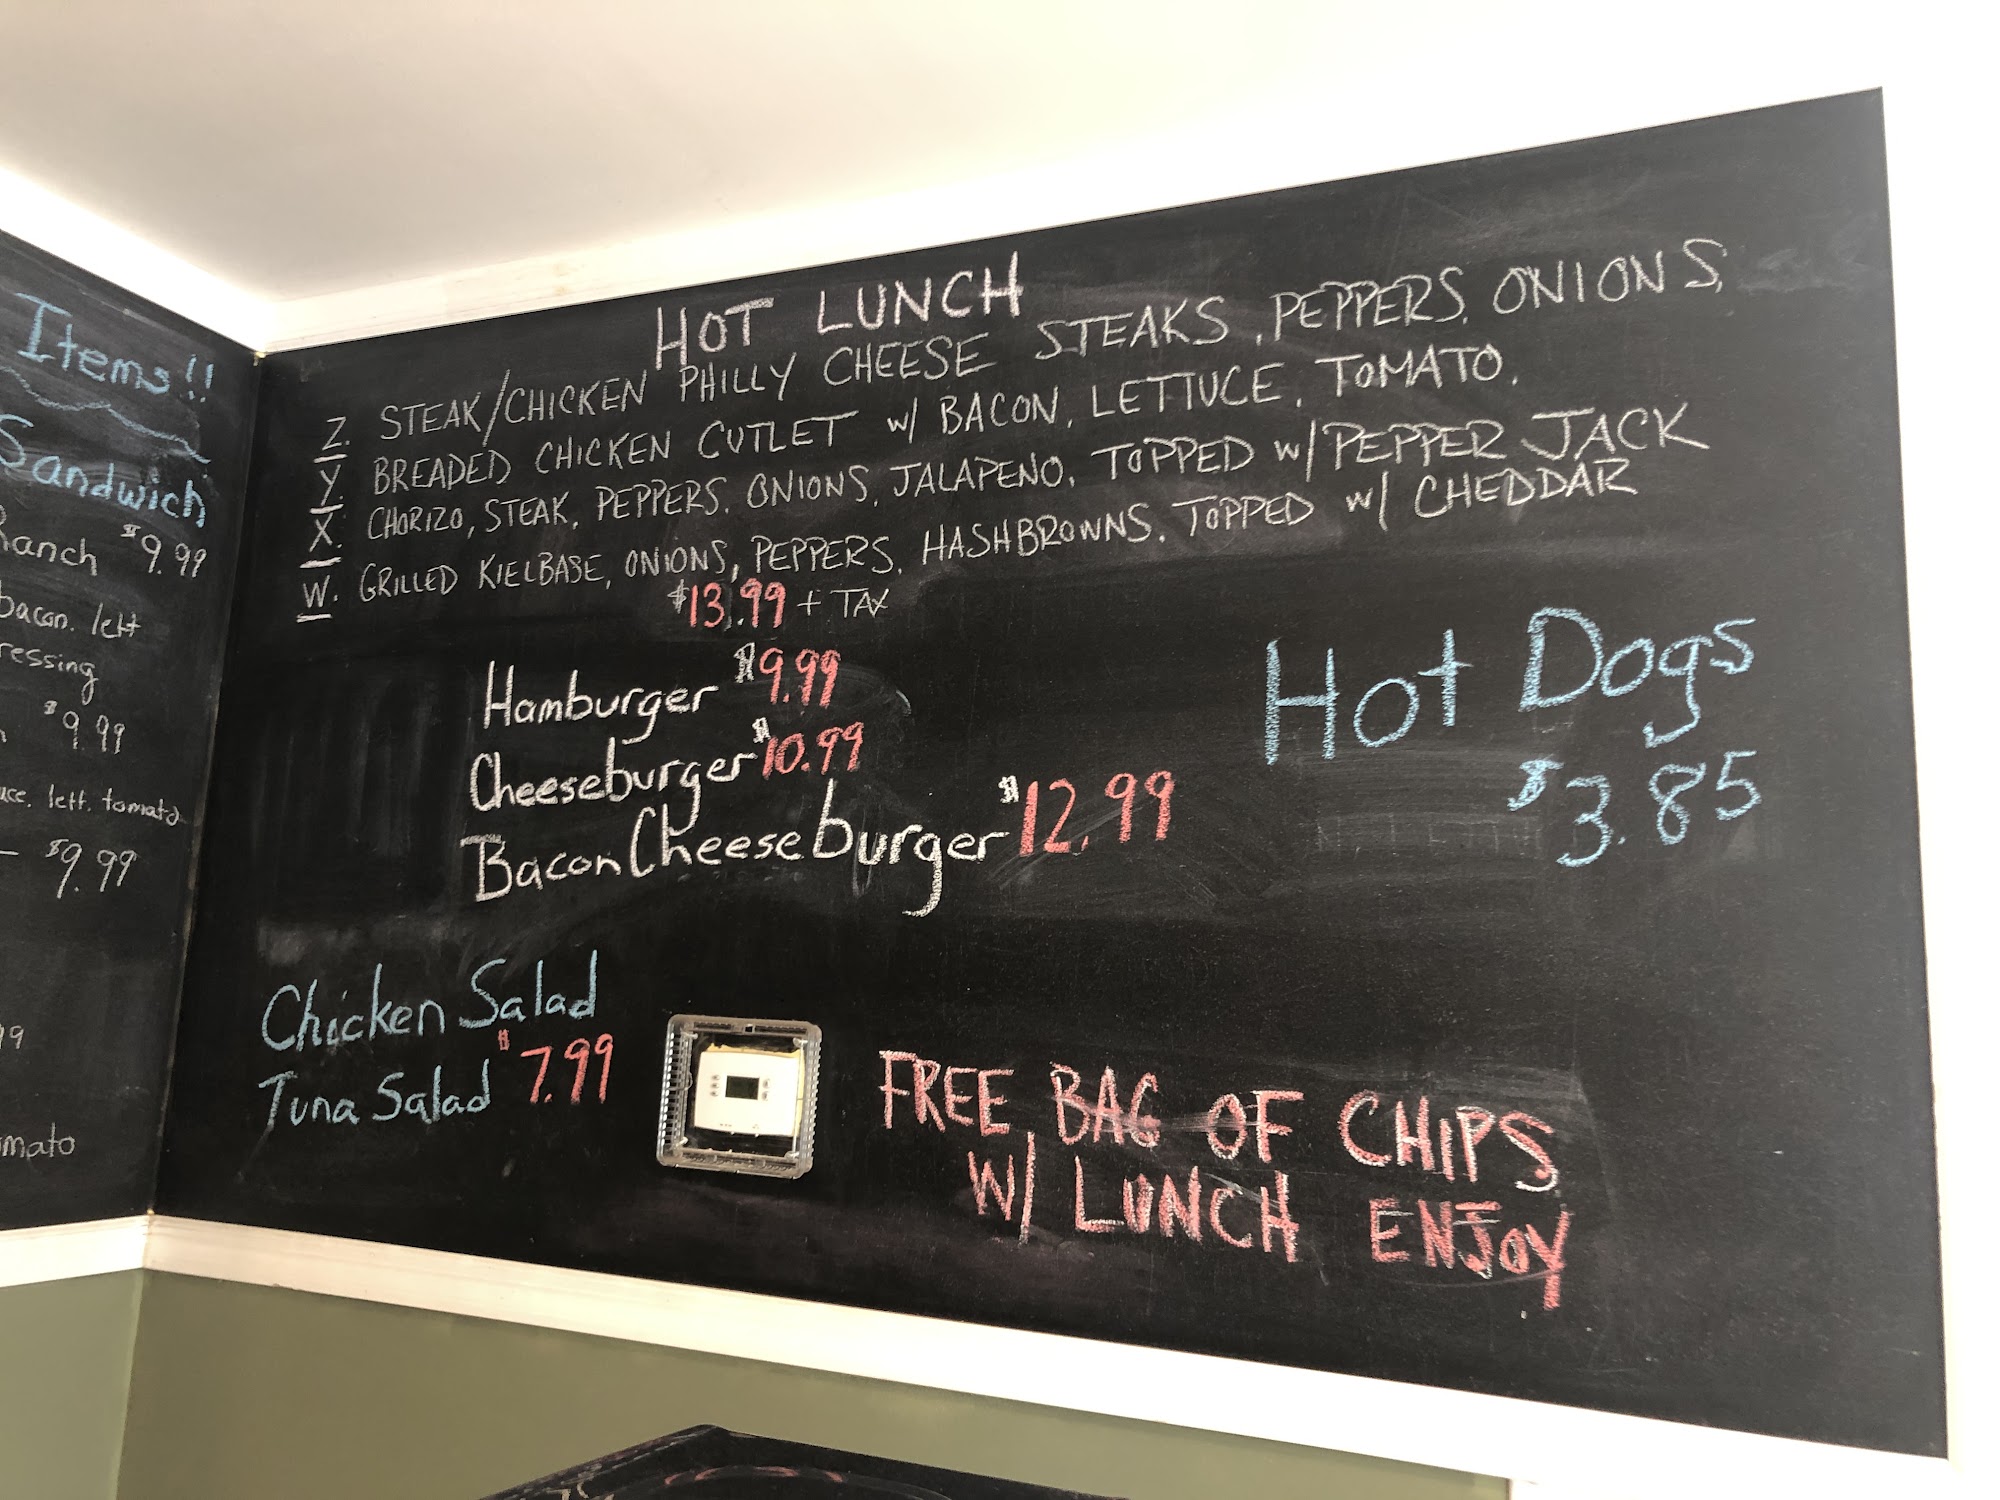 Items!!
Sandwich
Ranch $9.99
bacon. lett
$9.99
lett. tomato
$9.99
HOT LUNCH
Z. STEAK/CHICKEN PHILLY CHEESE STEAKS, PEPPERS, ONIONS,
Y. BREADED CHICKEN CUTLET w/ BACON, LETTUCE, TOMATO.
X. CHORIZO, STEAK, PEPPERS, ONIONS, JALAPENO, TOPPED w/ PEPPER JACK
W. GRILLED KIELBASE, ONIONS, PEPPERS, HASHBROWNS. TOPPED w/ CHEDDAR
$13.99 + TAX
Hamburger $9.99
Cheeseburger $10.99
Bacon Cheeseburger $12.99
Hot Dogs
$3.85
Chicken Salad
Tuna Salad $7.99
FREE BAG OF CHIPS
W/ LUNCH ENJOY